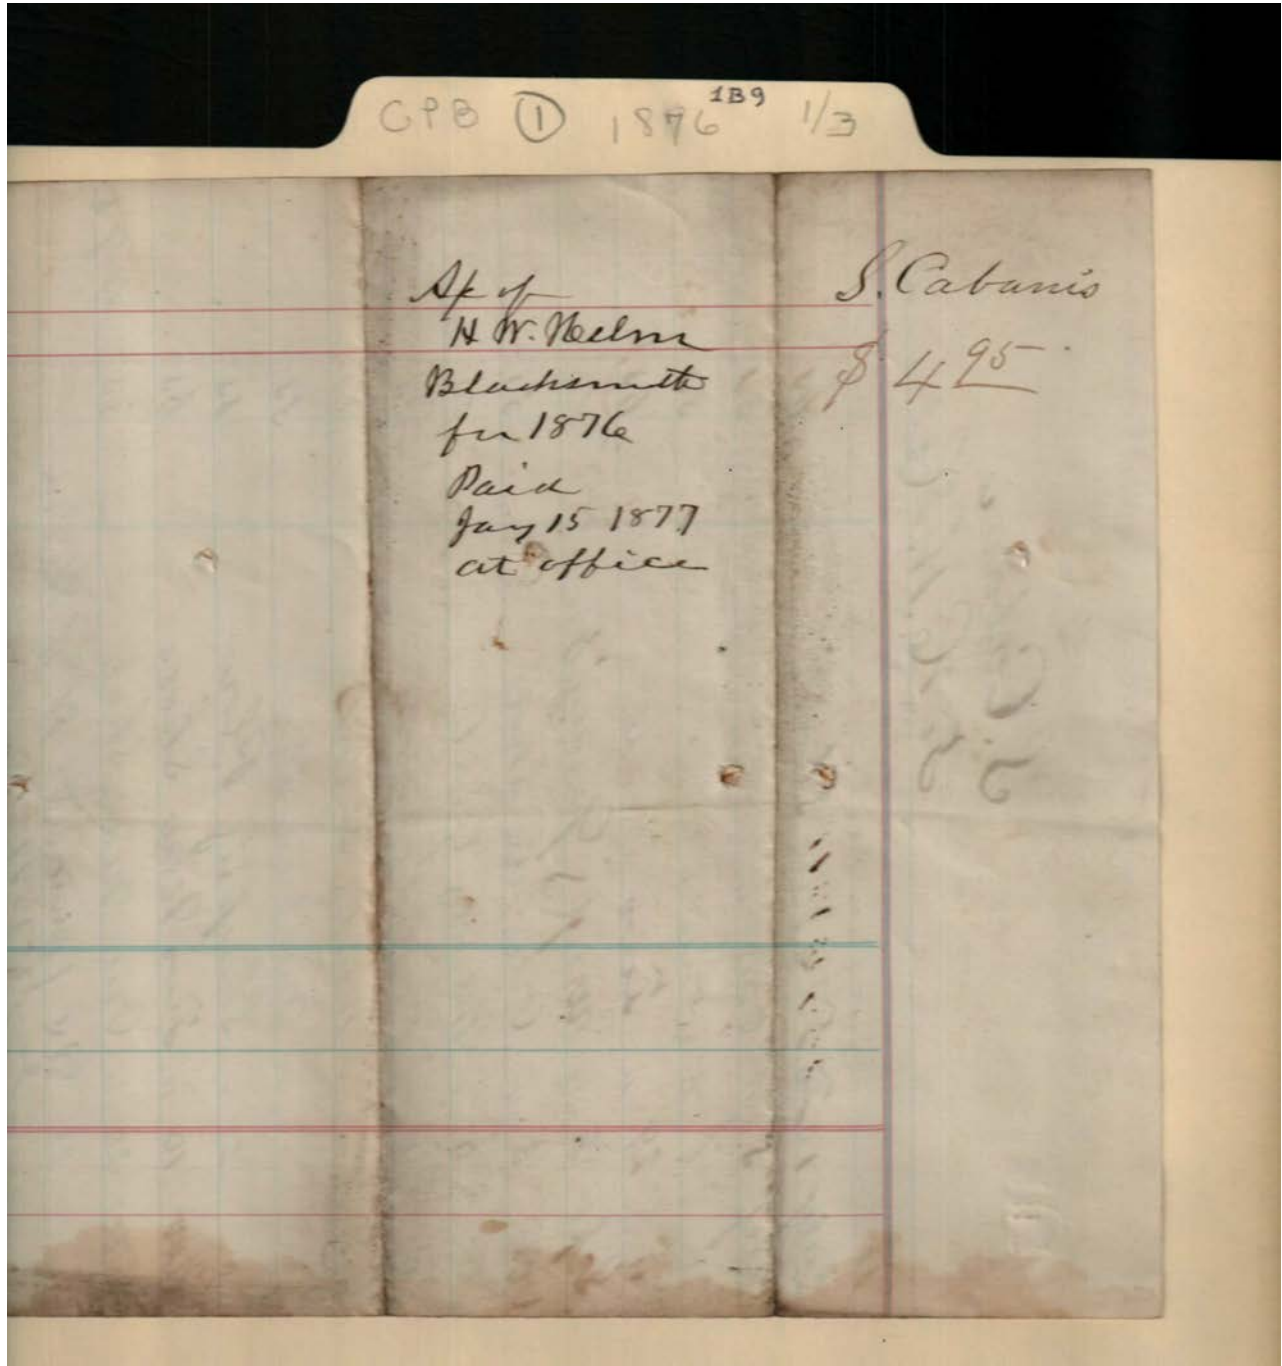 CPB ① 1876 1B9 1/3
H W. Helm
Blacksmith
for 1876
Paid
Jany 15 1877
at office
S. Cabanis
$ 4 95